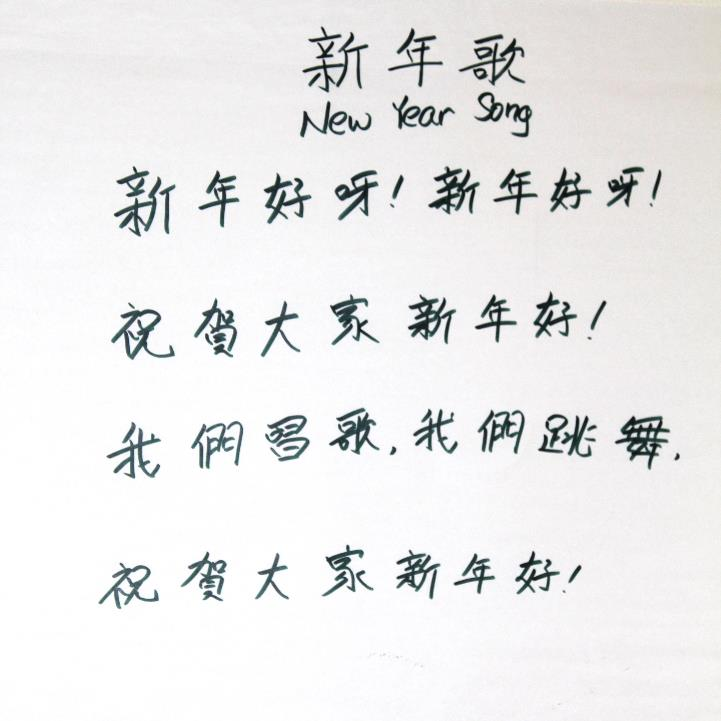 新年歌
New Year Song
新年好呀!新年好呀!
祝賀大家新年好!
我們歌,我們跳舞.
祝賀大家新年好!